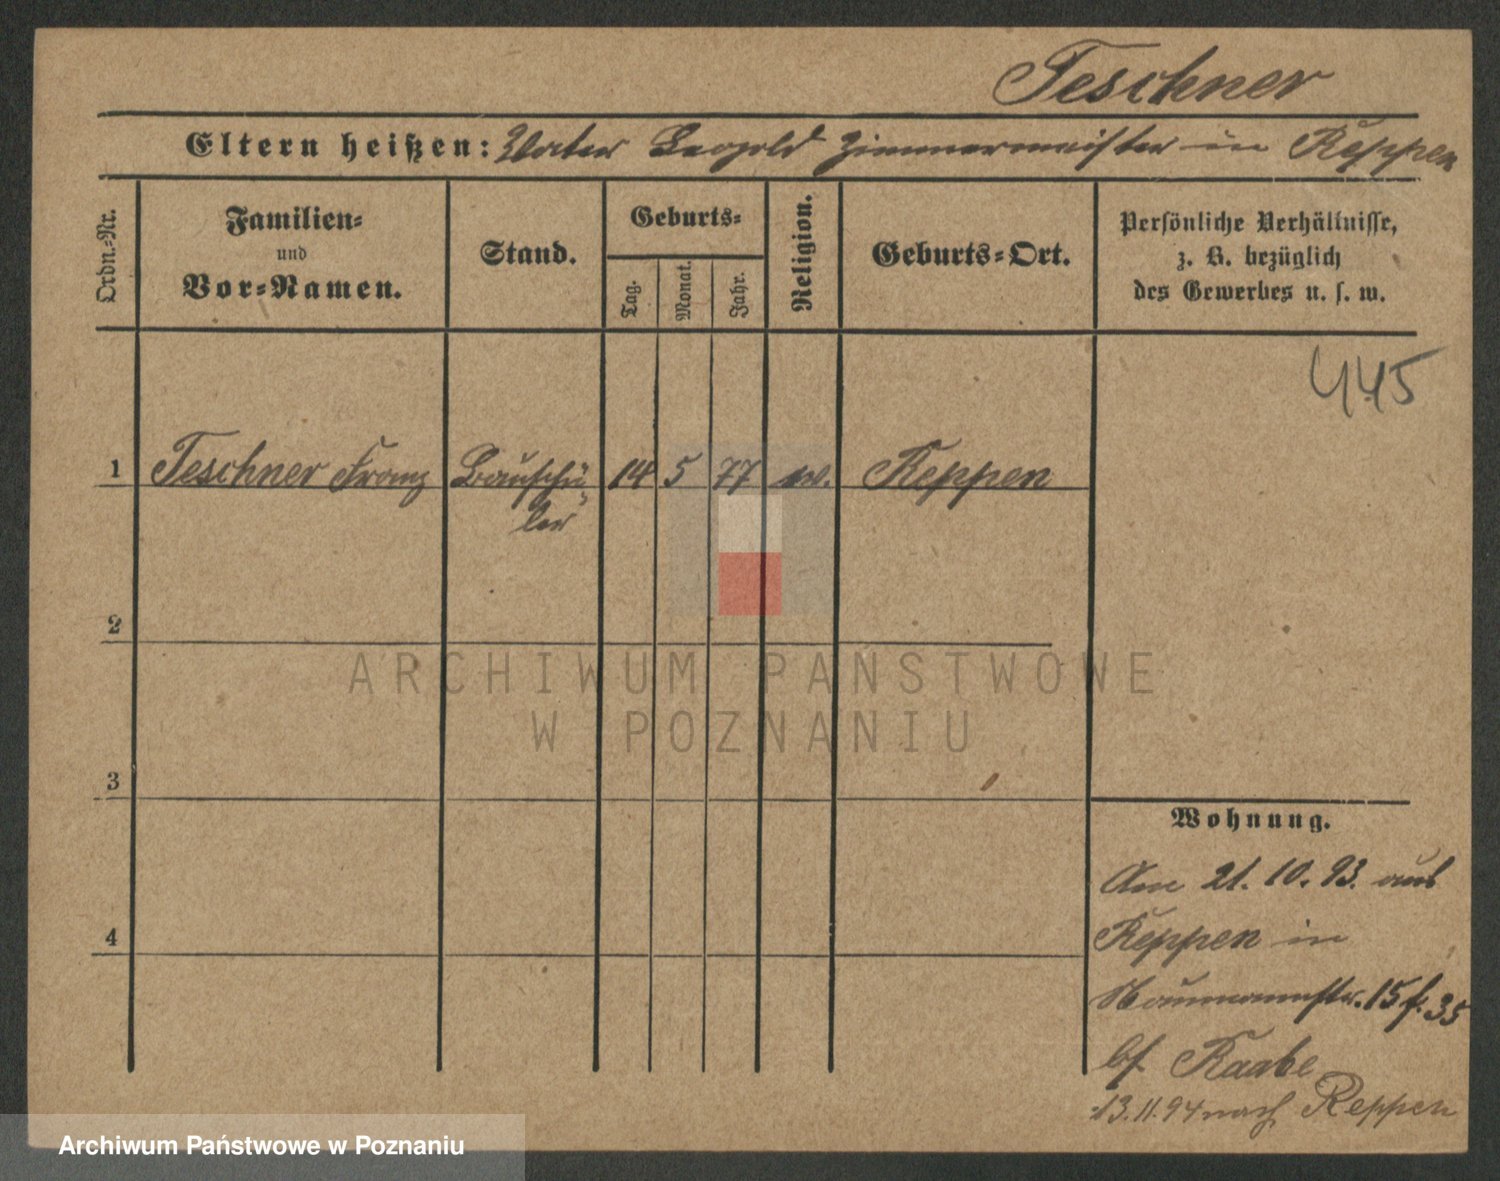 Teschner
Eltern heißen: Vater Leopold Zimmermeister in Reppen
Ordn.-Nr.
Familien-
und
Vor-Namen.
Stand.
Geburts-
Tag.
Monat.
Jahr.
Religion.
Geburts-Ort.
Persönliche Verhältnisse,
z. B. bezüglich
des Gewerbes u. s. w.
445
1 Teschner Franz Bauschü- 14 5 77 ev. Reppen
ler
2
3
4
ARCHIWUM PAŃSTWOWE
W POZNANIU
Wohnung.
Am 21. 10. 93. aus
Reppen in
Naumannstr. 15 f. 35
bf. Raabe
13.11.94 nach Reppen
Archiwum Państwowe w Poznaniu